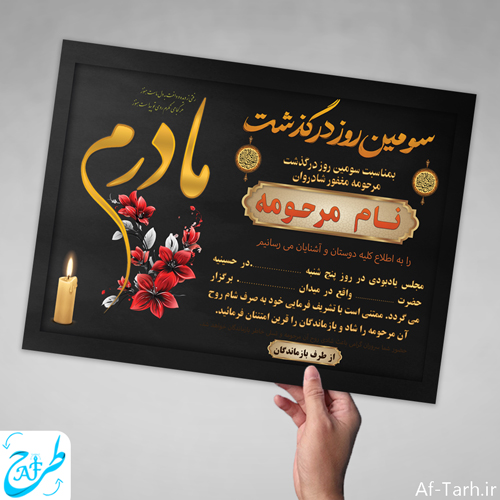 سومین روز درگذشت
مادرم
بمناسبت سومین روز درگذشت
مرحومه مغفور شادروان
نام مرحومه
را به اطلاع کلیه دوستان و آشنایان می رسانیم
مجلس یادبودی در روز پنج شنبه ......................در حسینیه
حضرت .................... واقع در میدان ................. . برگزار
می گردد. ممتنی است با تشریف فرمایی خود به صرف شام روح
آن مرحومه را شاد و بازماندگان را قرین امتنان فرمائید.
از طرف بازماندگان
طرح
AF
Af-Tarh.ir